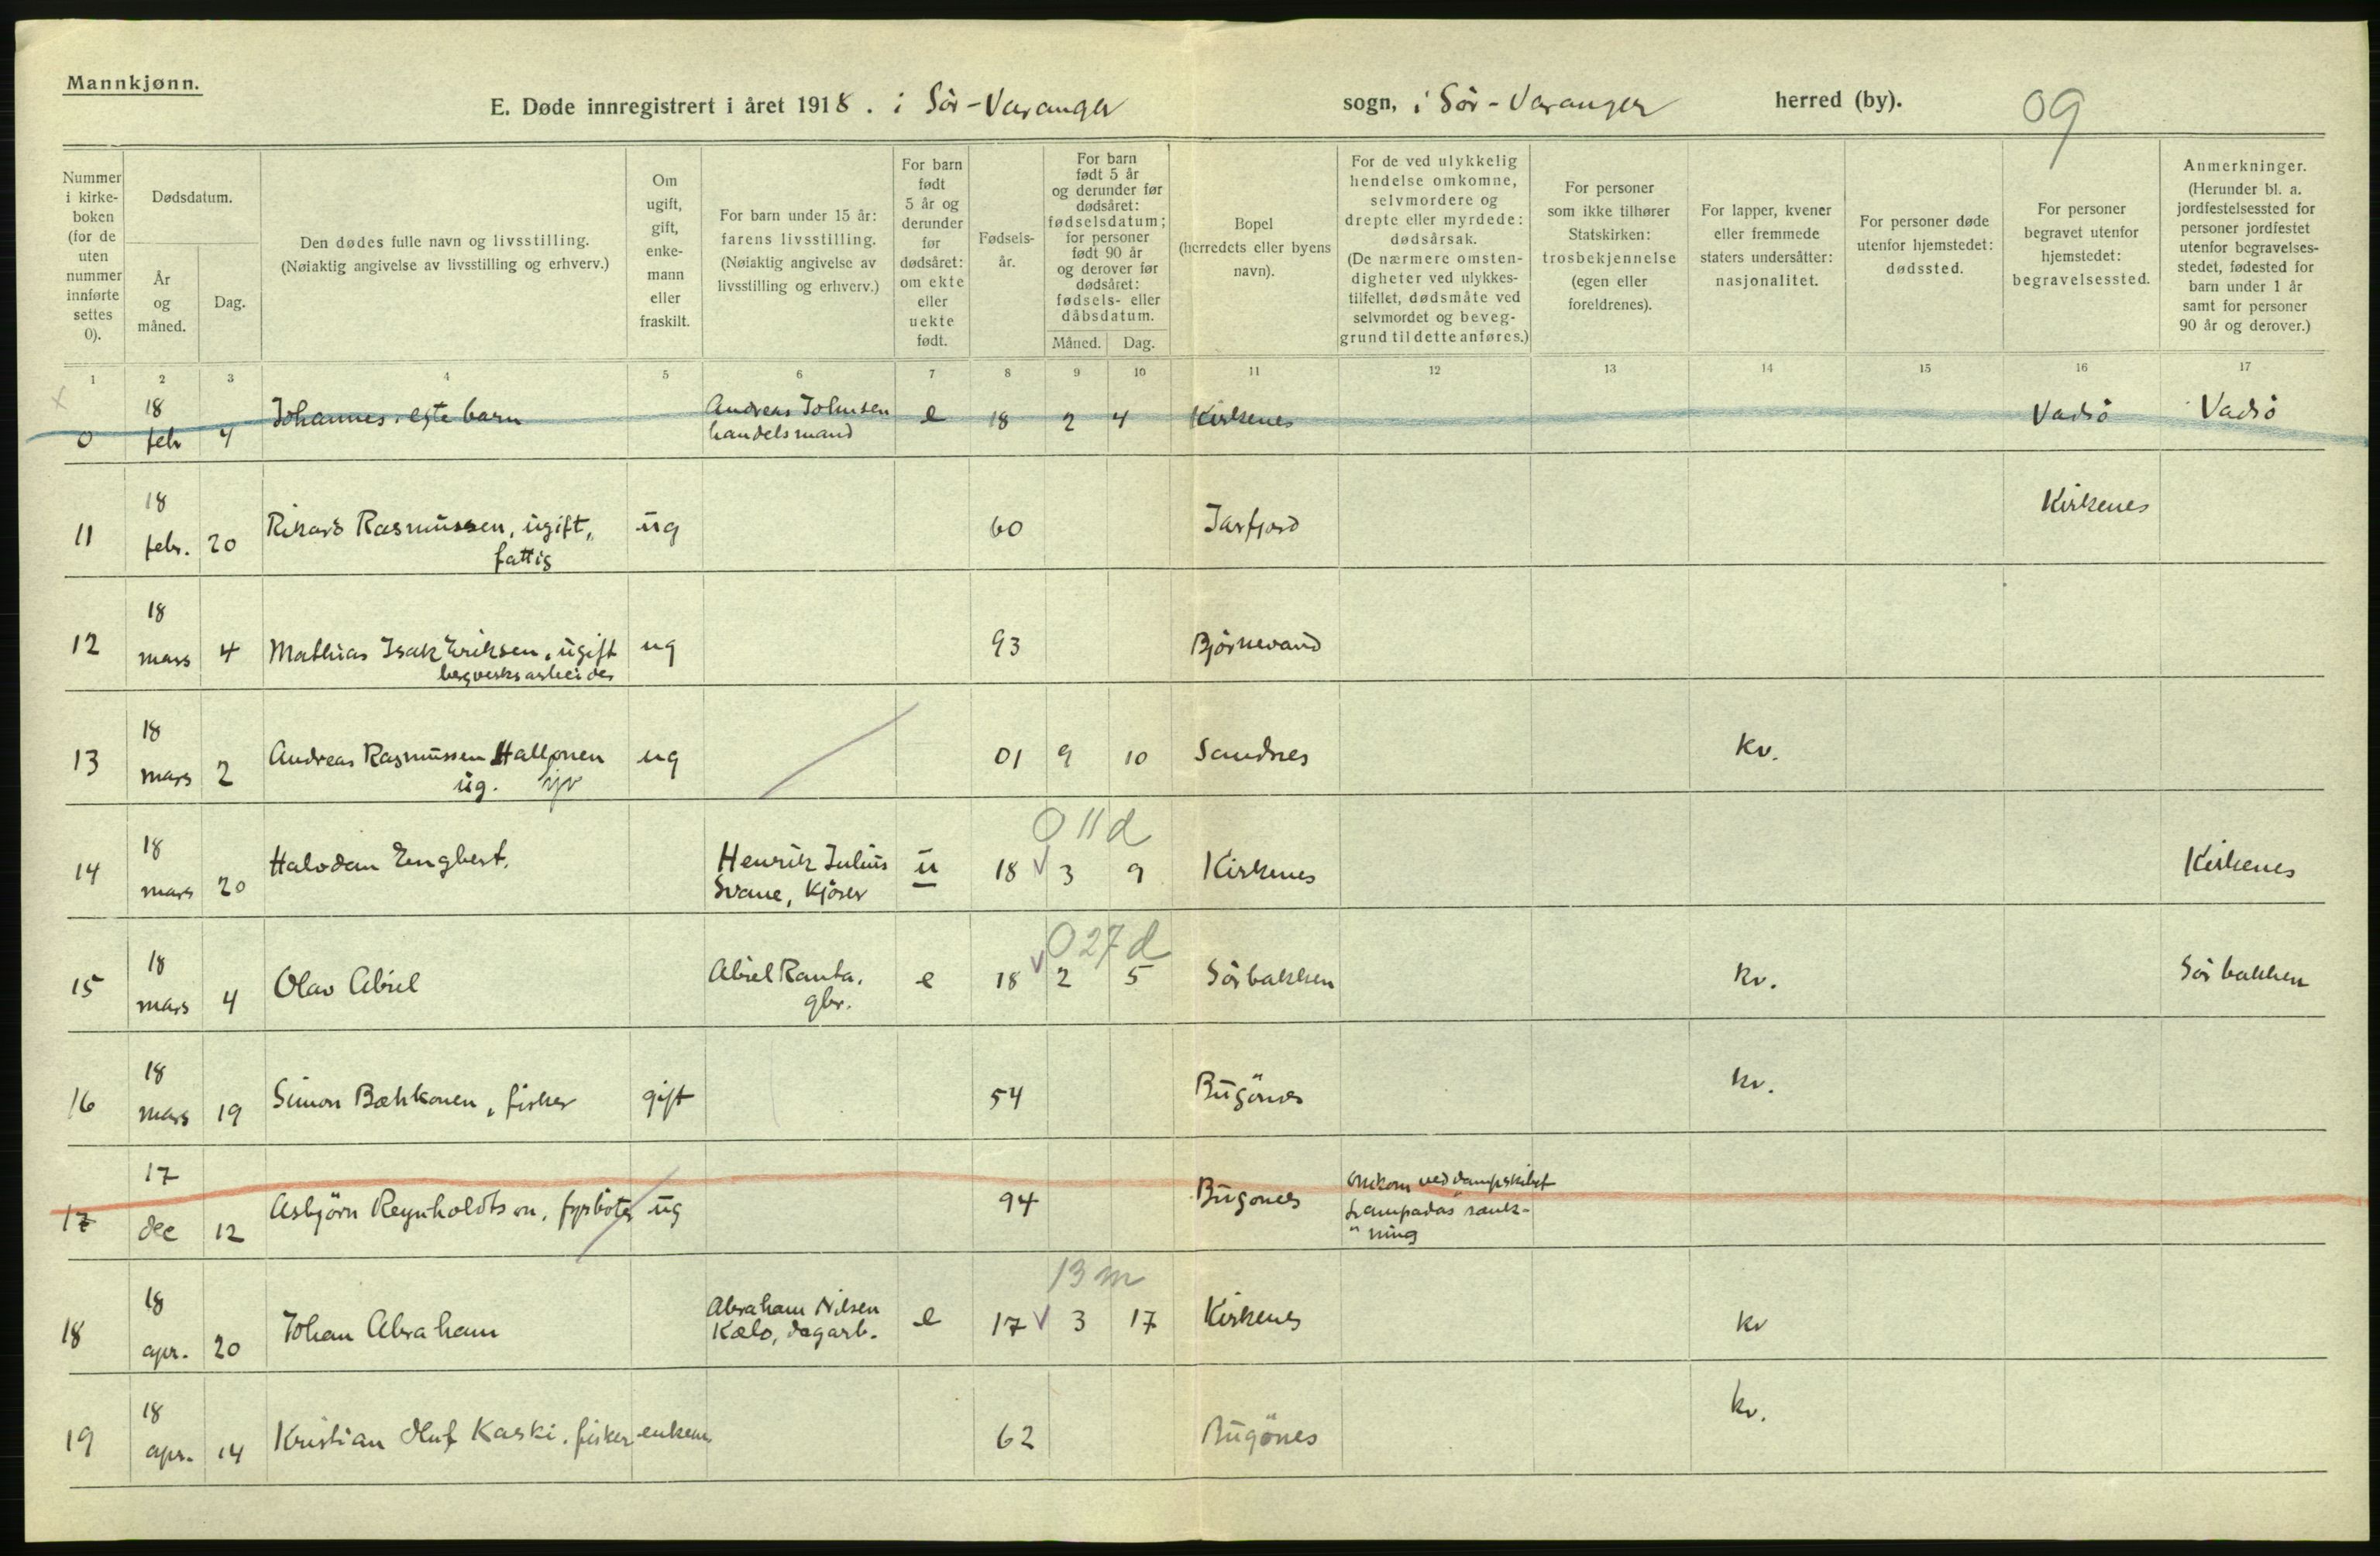 Mannkjønn.
E. Døde innregistrert i året 1918. i Sör-Varanger sogn, i Sör-Varanger herred (by). 09
Nummer i kirke-boken (for de uten nummer innførte settes 0).
Dødsdatum.
År og måned.
Dag.
Den dødes fulle navn og livsstilling.
(Nøiaktig angivelse av livsstilling og erhverv.)
Om ugift, gift, enke-mann eller fraskilt.
For barn under 15 år: farens livsstilling. (Nøiaktig angivelse av livsstilling og erhverv.)
For barn født 5 år og derunder før dødsåret: om ekte eller uekte født.
Fødsels-år.
For barn født 5 år og derunder før dødsåret: fødselsdatum; for personer født 90 år og derover før dødsåret: fødsels- eller dåbsdatum.
Måned. Dag.
Bopel (herredets eller byens navn).
For de ved ulykkelig hendelse omkomne, selvmordere og drepte eller myrdede: dødsårsak. (De nærmere omsten-digheter ved ulykkes-tilfellet, dødsmåte ved selvmordet og beveg-grund til dette anføres.)
For personer som ikke tilhører Statskirken: trosbekjennelse (egen eller foreldrenes).
For lapper, kvener eller fremmede staters undersåtter: nasjonalitet.
For personer døde utenfor hjemstedet: dødssted.
For personer begravet utenfor hjemstedet: begravelsessted.
Anmerkninger. (Herunder bl. a. jordfestelsessted for personer jordfestet utenfor begravelses-stedet, fødested for barn under 1 år samt for personer 90 år og derover.)
1 2 3 4 5 6 7 8 9 10 11 12 13 14 15 16 17
0 18 feb 4 Johannes, egte barn Andreas Johnsen handelsmand e 18 2 4 Kirkenes Vadsö Vadsö
11 18 febr. 20 Rikard Rasmussen, ugift, fattig ug 60 Jarfjord Kirkenes
12 18 mars 4 Mathias Isak Eriksen, ugift bergverksarbeider ug 93 Björnevand
13 18 mars 2 Andreas Rasmussen Hallonen ug. ug 01 9 10 Sandnes kv.
0 11 d
14 18 mars 20 Halvdan Engbert. Henrik Julius Svane, kjörer u 18 3 9 Kirkenes Kirkenes
0 27 d
15 18 mars 4 Olav Abiel Abiel Ranta. gbr. e 18 2 5 Sörbakken kv. Sörbakken
16 18 mars 19 Simon Bæhkonen, fisker gift 54 Bugönes kv.
17 17 dec 12 Asbjörn Reynholdtsen, fyrböter ug 94 Bugönes omkom ved dampskibet sænk-ning
13 m
18 18 apr. 20 Johan Abraham Abraham Nilsen Kælo, dagarb. e 17 3 17 Kirkenes kv
19 18 apr. 14 Kristian Oluf Kaski. fisker enkem 62 Bugönes kv.